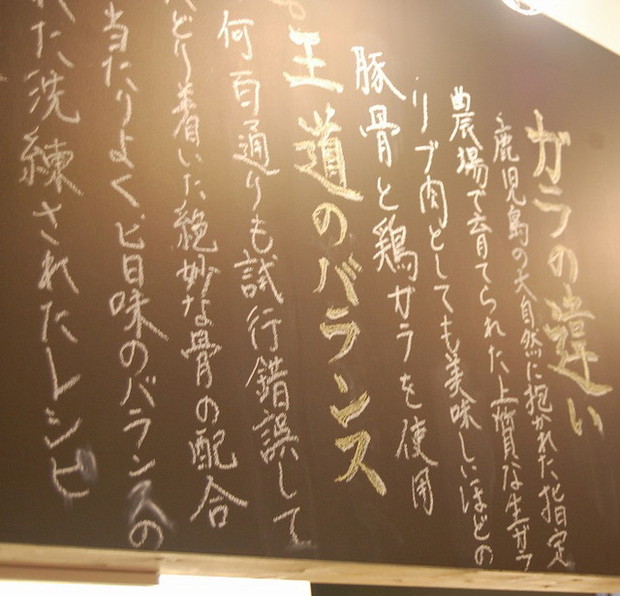 ガラの違い
鹿児島の大自然に抱かれた指定
農場で育てられた上質な生ガラ
リブ肉としても美味しいほどの
豚骨と鶏ガラを使用
王道のバランス
何百通りも試行錯誤して
どり着いた絶妙な骨の配合
当たりよく、旨味のバランスの
れた洗練されたレシピ